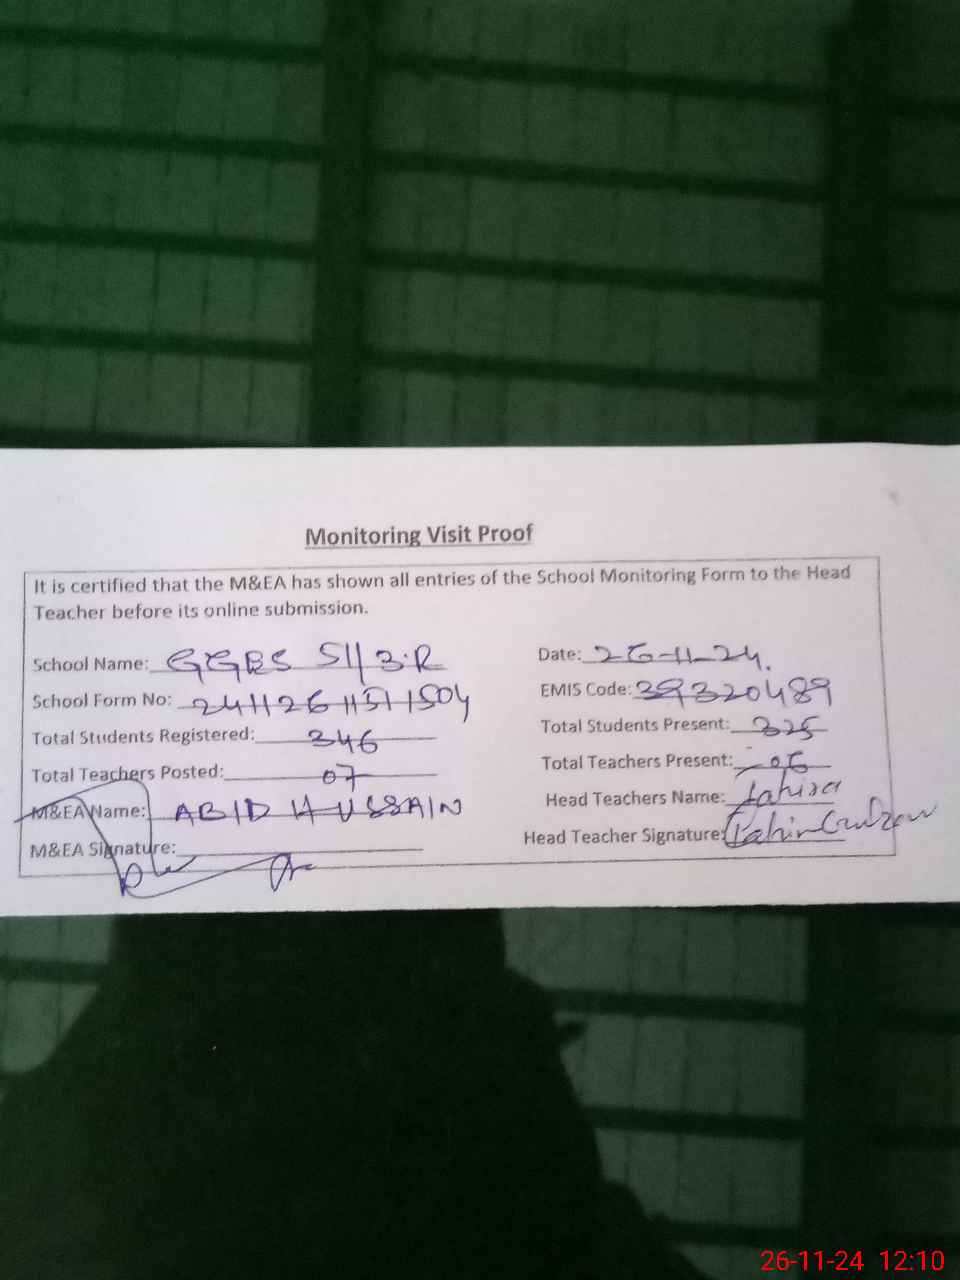 Monitoring Visit Proof
It is certified that the M&EA has shown all entries of the School Monitoring Form to the Head
Teacher before its online submission.
School Name: GGES 511/3.R Date: 26-11-24.
School Form No: 24112611511504 EMIS Code: 39320489
Total Students Registered: 346 Total Students Present: 325
Total Teachers Posted: 07 Total Teachers Present: 06
M&EA Name: ABID HUSSAIN Head Teachers Name: Tahira
M&EA Signature: Head Teacher Signature:
26-11-24 12:10